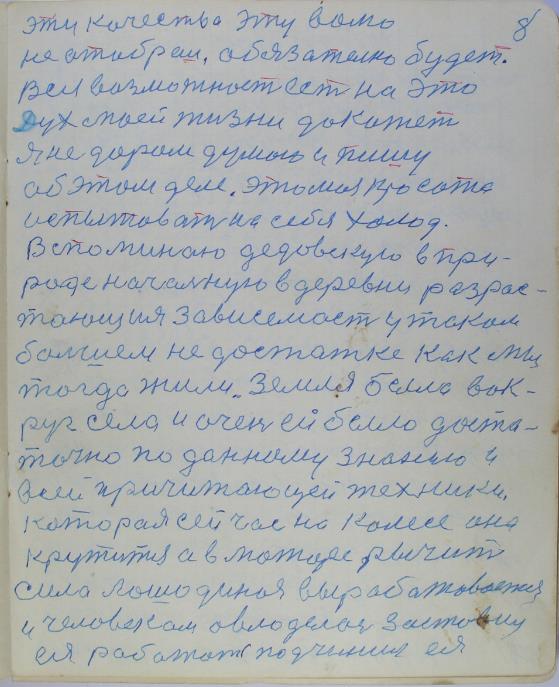 8
эти качества эту вамо
не отобрал, обязателно будет.
Вся возможност ест на это
Дух моей жизни докажет
я не даром думаю и пишу
об этом деле. это моя красота
испытоват на себя холод.
Вспоминаю дедовскую в при-
роде началную в деревни разрас-
тающия Зависемост у таком
болшем не достатке как мы
тогда жили. Земля была вок-
руг села и очен ей было доста-
точно по данному знанию и
всей причитающей техники.
которая сей час на колесе она
крутится а в моторе рычит
сила лошодиная вырабатовоется
и человеком овлоделоя
ея работат подчинил ея